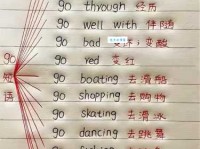 go through 经历
go well with 伴随
go bad 变
go red 变红
go boating 去滑船
go shopping 去购物
go skating 去滑冰
go dancing 去跳舞
go
短
语